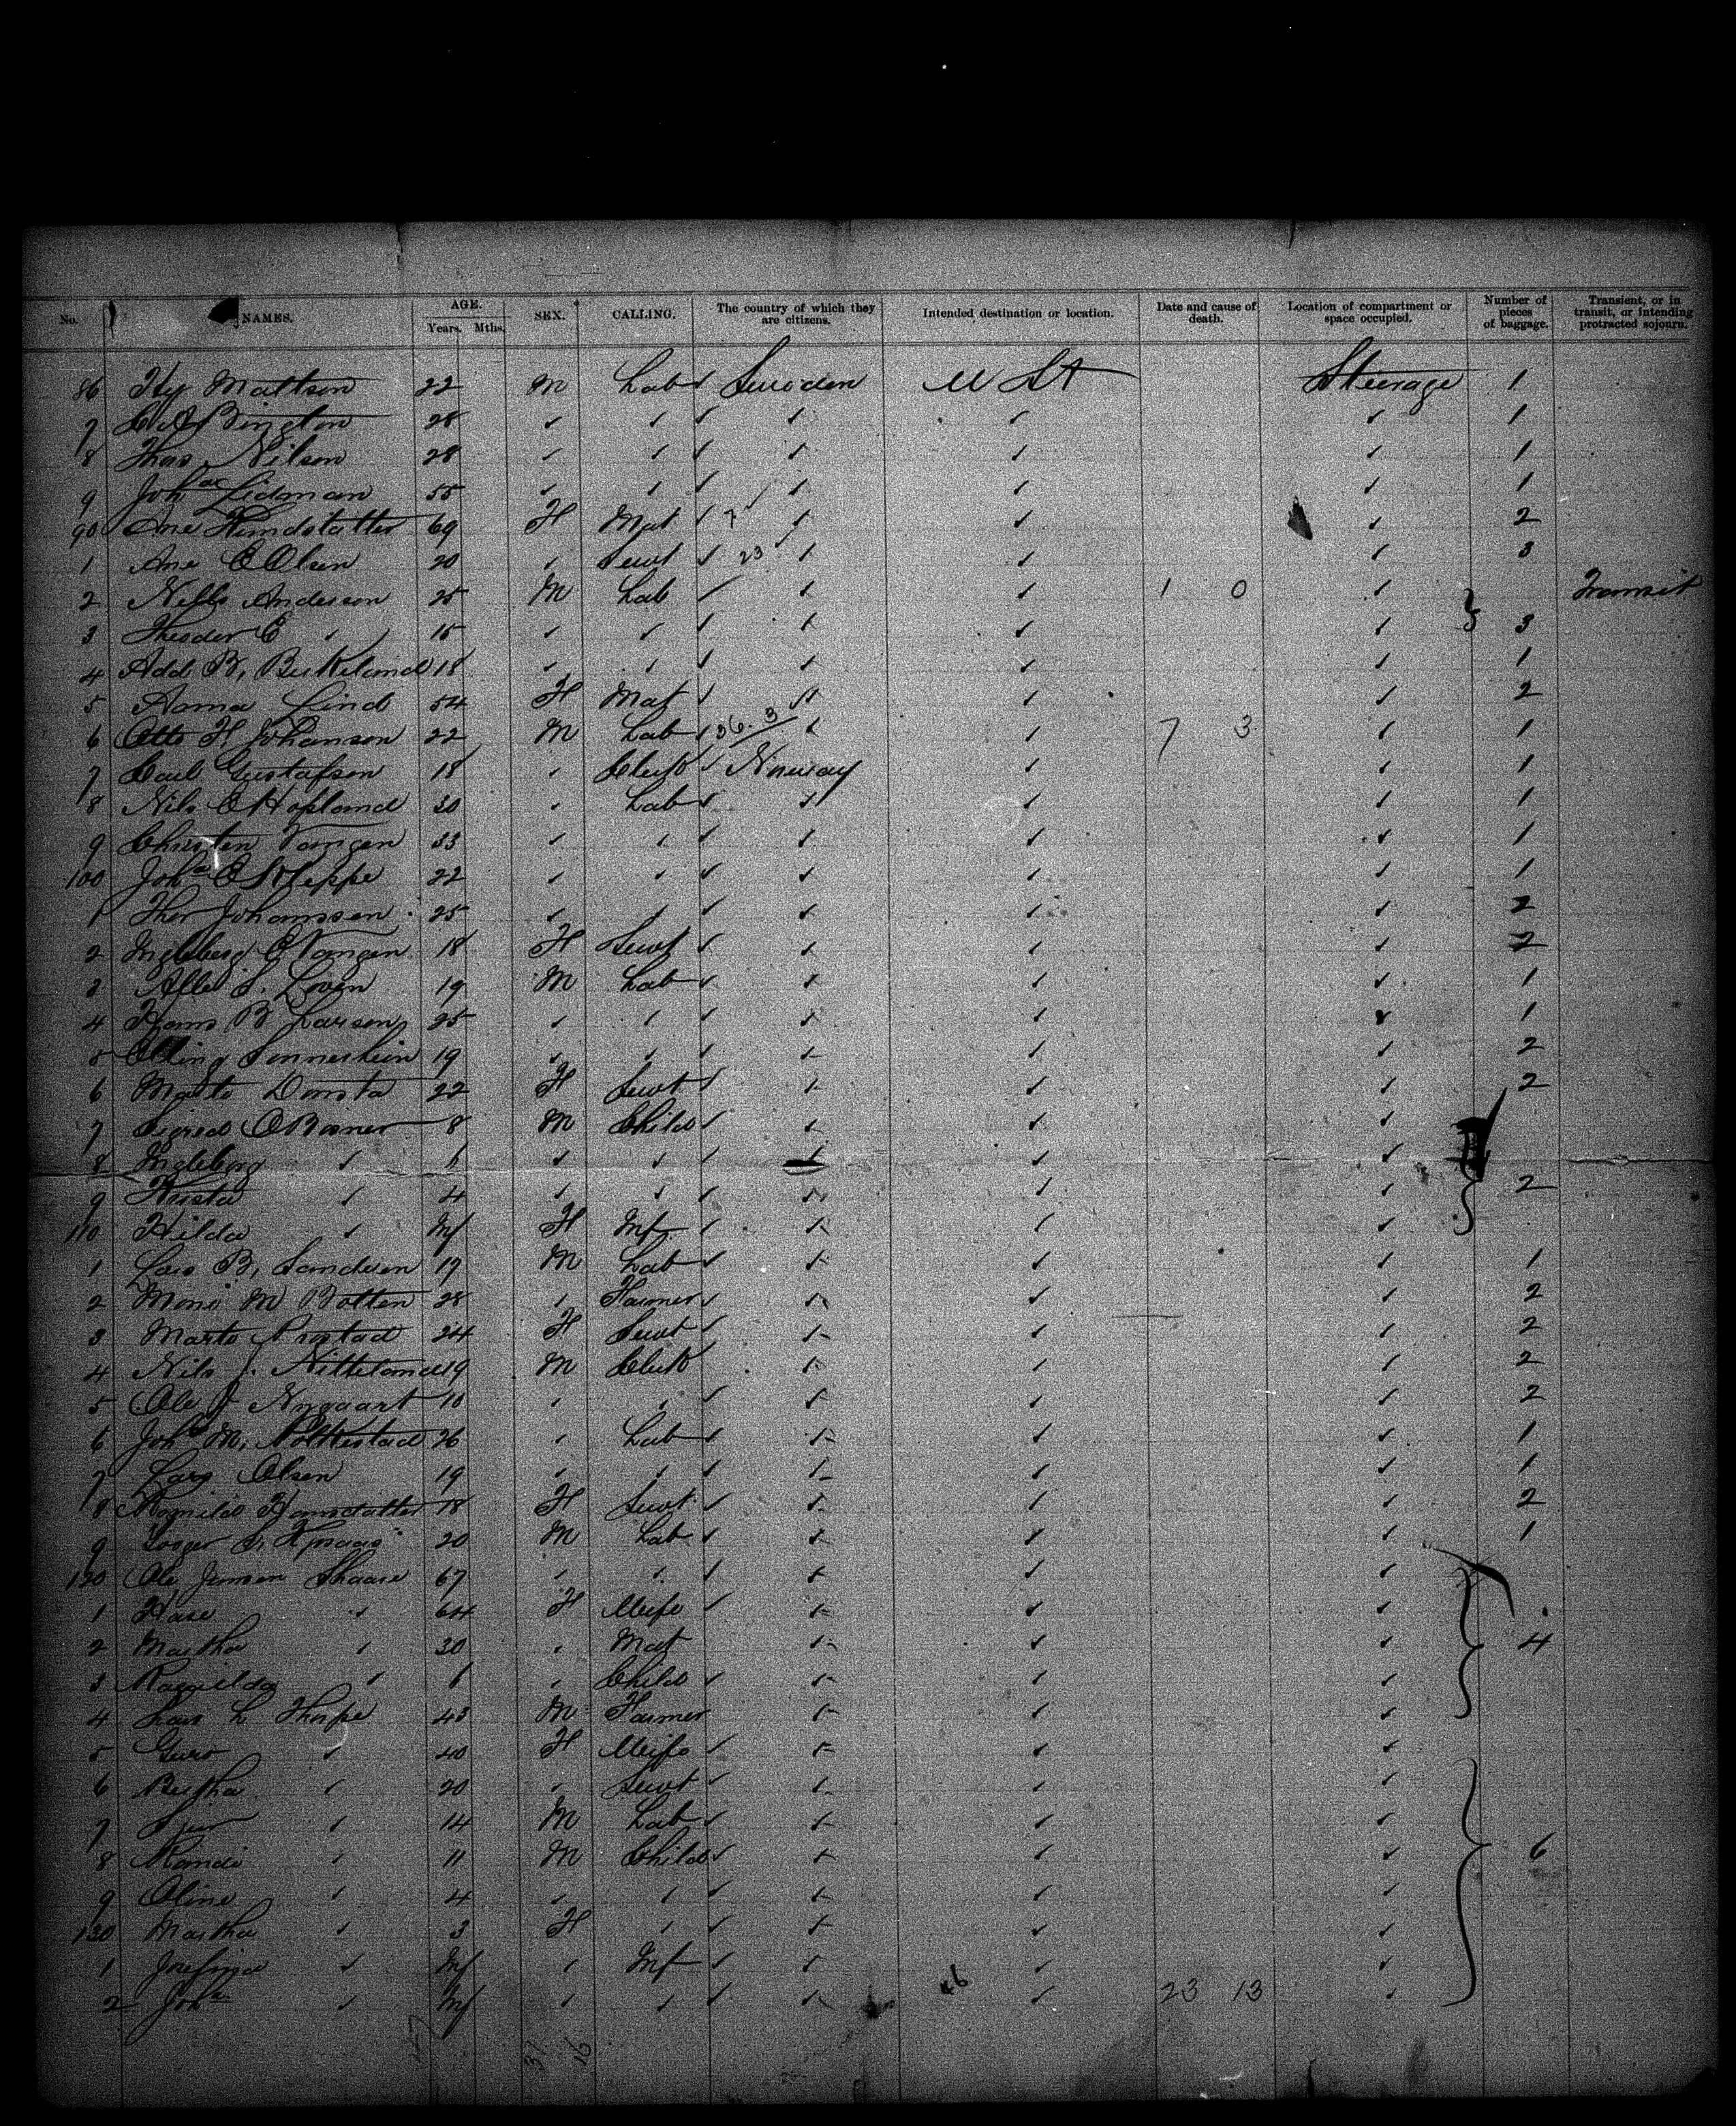 No. NAMES. AGE. Years. Mths. SEX. CALLING. The country of which they are citizens. Intended destination or location. Date and cause of death. Location of compartment or space occupied. Number of pieces of baggage. Transient, or in transit, or intending protracted sojourn.
86 Hy Mattson 22 M Lab ✓ Sweden U St Steerage 1
7 Bington 28 ✓ ✓ ✓ ✓ ✓ ✓ 1
8 Thos Nilson 28 ✓ ✓ ✓ ✓ ✓ ✓ 1
9 Joh Lidman 55 ✓ ✓ ✓ ✓ ✓ ✓ 1
90 Ane 69 F Mat ✓ 7 ✓ ✓ ✓ 2
1 Ane E Olsen 20 ✓ Servt ✓ 23 ✓ ✓ ✓ 3
2 Nills Anderson 25 M Lab ✓ ✓ ✓ 1 0 ✓ Transit
3 Theodor E ✓ 15 ✓ ✓ ✓ ✓ ✓ ✓ 3
4 Add B, Birkeland 18 ✓ ✓ ✓ ✓ ✓ ✓ 1
5 Anna Lind 54 F Mat ✓ ✓ ✓ ✓ 2
6 Otto H Johanson 22 M Lab ✓ 36. 3 ✓ ✓ 7 3 ✓ 1
7 Carl Gustafson 18 ✓ Clerk ✓ Norway ✓ ✓ 1
8 Nils E Hopland 30 ✓ Lab ✓ ✓ ✓ ✓ 1
9 Christen Vangen 33 ✓ ✓ ✓ ✓ ✓ ✓ 1
100 Joh E Kleppe 22 ✓ ✓ ✓ ✓ ✓ ✓ 1
1 Thor Johanssen 25 ✓ ✓ ✓ ✓ ✓ ✓ 2
2 Ingleberg E Vangen 18 F Servt ✓ ✓ ✓ ✓ 2
3 S. Loven 19 M Lab ✓ ✓ ✓ ✓ 1
4 Hans B Larson 25 ✓ ✓ ✓ ✓ ✓ ✓ 1
5 Elling 19 ✓ ✓ ✓ ✓ ✓ ✓ 2
6 Marto 22 F Servt ✓ ✓ ✓ ✓ 2
7 Sigred 8 M Child ✓ ✓ ✓ ✓
8 Ingleberg ✓ 6 ✓ ✓ ✓ ✓ ✓ ✓
9 Krista ✓ 4 ✓ ✓ ✓ ✓ ✓ ✓ 2
110 Hilda ✓ Inf F Inf ✓ ✓ ✓ ✓
1 Lars B, 19 M Lab ✓ ✓ ✓ ✓ 1
2 Mons M Botten 28 ✓ Farmer ✓ ✓ ✓ ✓ 2
3 Marto 24 F Servt ✓ ✓ ✓ ✓ 2
4 Nils J. 19 M Clerk ✓ ✓ ✓ 2
5 Ole J Nygaart 18 ✓ ✓ ✓ ✓ ✓ ✓ 2
6 Joh M, 26 ✓ Lab ✓ ✓ ✓ ✓ 1
7 Lars Olsen 19 ✓ ✓ ✓ ✓ ✓ ✓ 1
8 Hansdatter 18 F Servt ✓ ✓ ✓ ✓ 2
9 20 M Lab ✓ ✓ ✓ ✓ 1
120 Ole Jensen Skaare 67 ✓ ✓ ✓ ✓ ✓ ✓
1 Kase ✓ 64 F Wife ✓ ✓ ✓ ✓
2 Martha ✓ 30 ✓ Mat ✓ ✓ ✓ 4
3 Ragnilda ✓ 6 ✓ Child ✓ ✓ ✓ ✓
4 Lars L Thorpe 43 M Farmer ✓ ✓ ✓
5 Guro ✓ 40 F Wife ✓ ✓ ✓ ✓
6 Bertha ✓ 20 ✓ Servt ✓ ✓ ✓ ✓
7 ✓ 14 M Lab ✓ ✓ ✓ ✓
8 Randi ✓ 11 M Child ✓ ✓ ✓ ✓ 6
9 Oline ✓ 4 ✓ ✓ ✓ ✓ ✓ ✓
130 Martha ✓ 3 F ✓ ✓ ✓ ✓ ✓
1 Josefina ✓ Inf ✓ Inf ✓ ✓ ✓ ✓
2 Joh ✓ Inf ✓ ✓ ✓ ✓ 46 ✓ 23 13 ✓
47 31 16